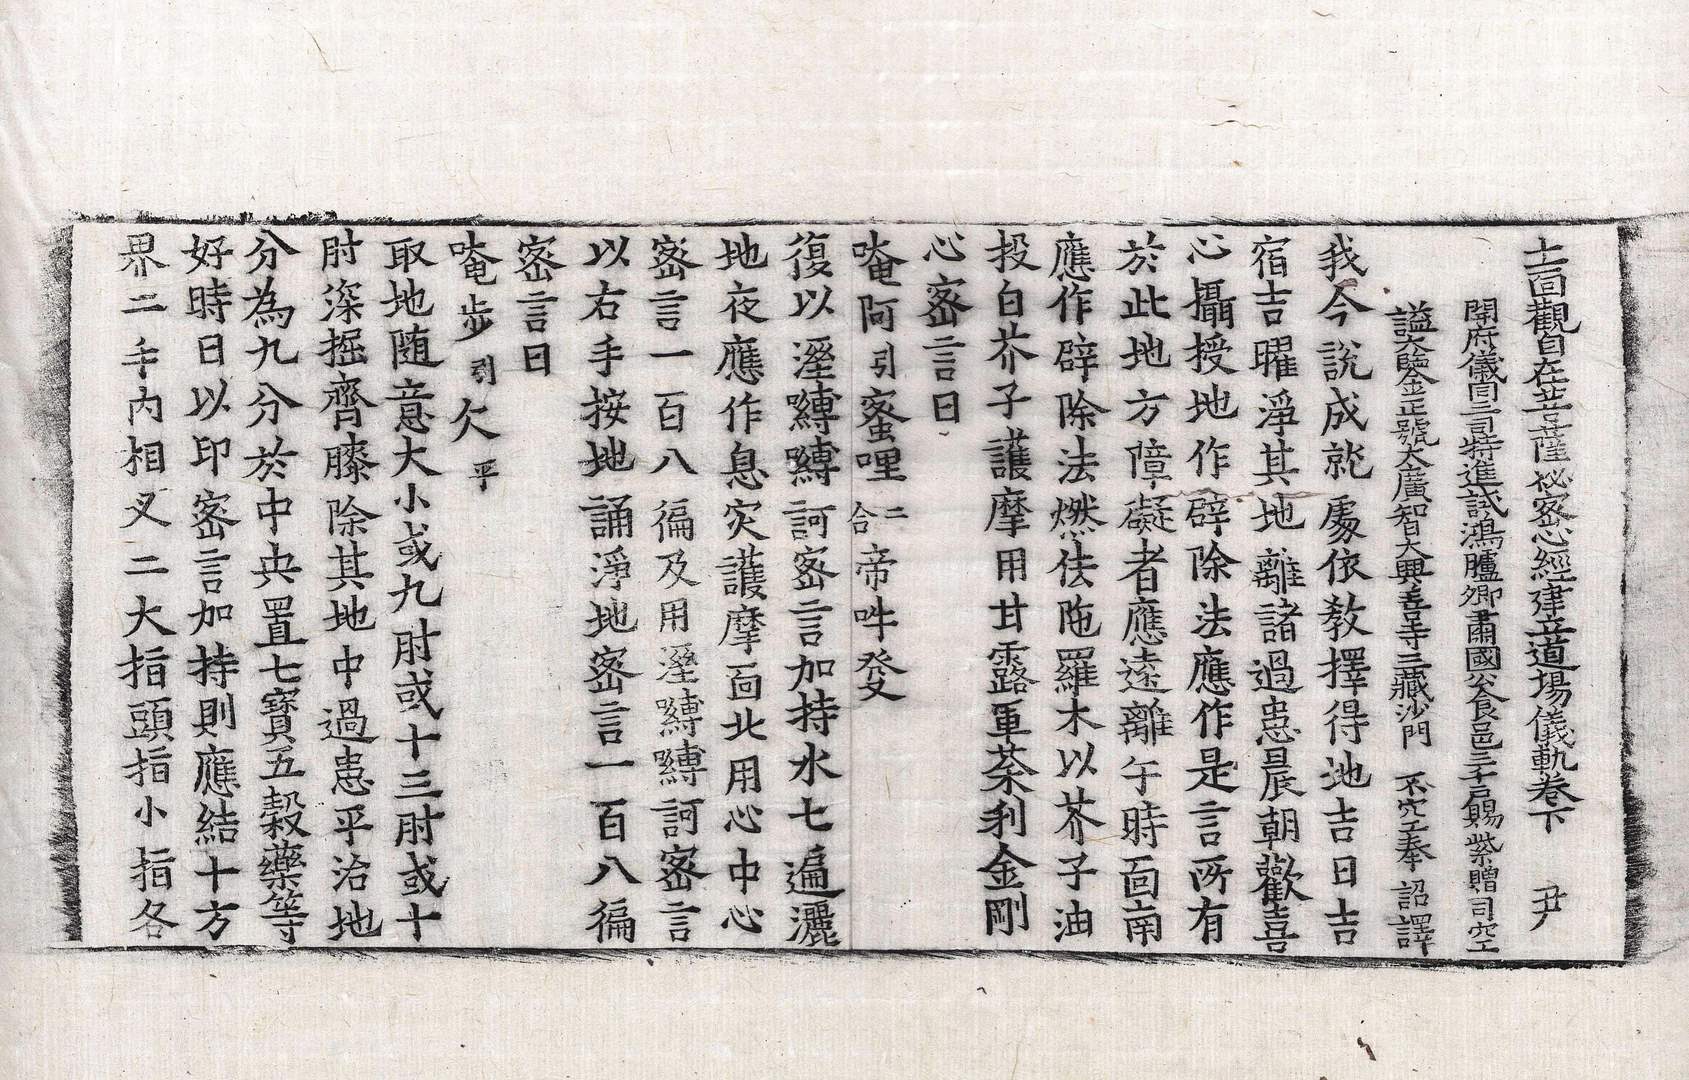 十一面觀自在菩薩秘密心經建立道場儀軌卷下 尹
開府儀同三司特進試鴻臚卿肅國公食邑三千戶賜紫贈司空
謚大鑒正號大廣智大興善寺三藏沙門 不空奉 詔譯
我今說成就處依教擇得地吉日吉
宿吉曜淨其地離諸過患晨朝歡喜
心攝授地作辟除法應作是言所有
於此地方障礙者應遠離午時面南
應作辟除法燃佉陁羅木以芥子油
投白芥子護摩用甘露軍荼利金剛
心密言曰
唵阿引蜜哩二合帝吽癹
復以溼嚩嚩訶密言加持水七遍灑
地夜應作息灾護摩面北用心中心
密言一百八徧及用溼嚩嚩訶密言
以右手按地誦淨地密言一百八徧
密言曰
唵步引欠平
取地随意大小或九肘或十三肘或十
肘深掘齊膝除其地中過患平治地
分為九分於中央置七寶五穀藥等
好時日以印密言加持則應結十方
界二手内相叉二大指頭指小指各